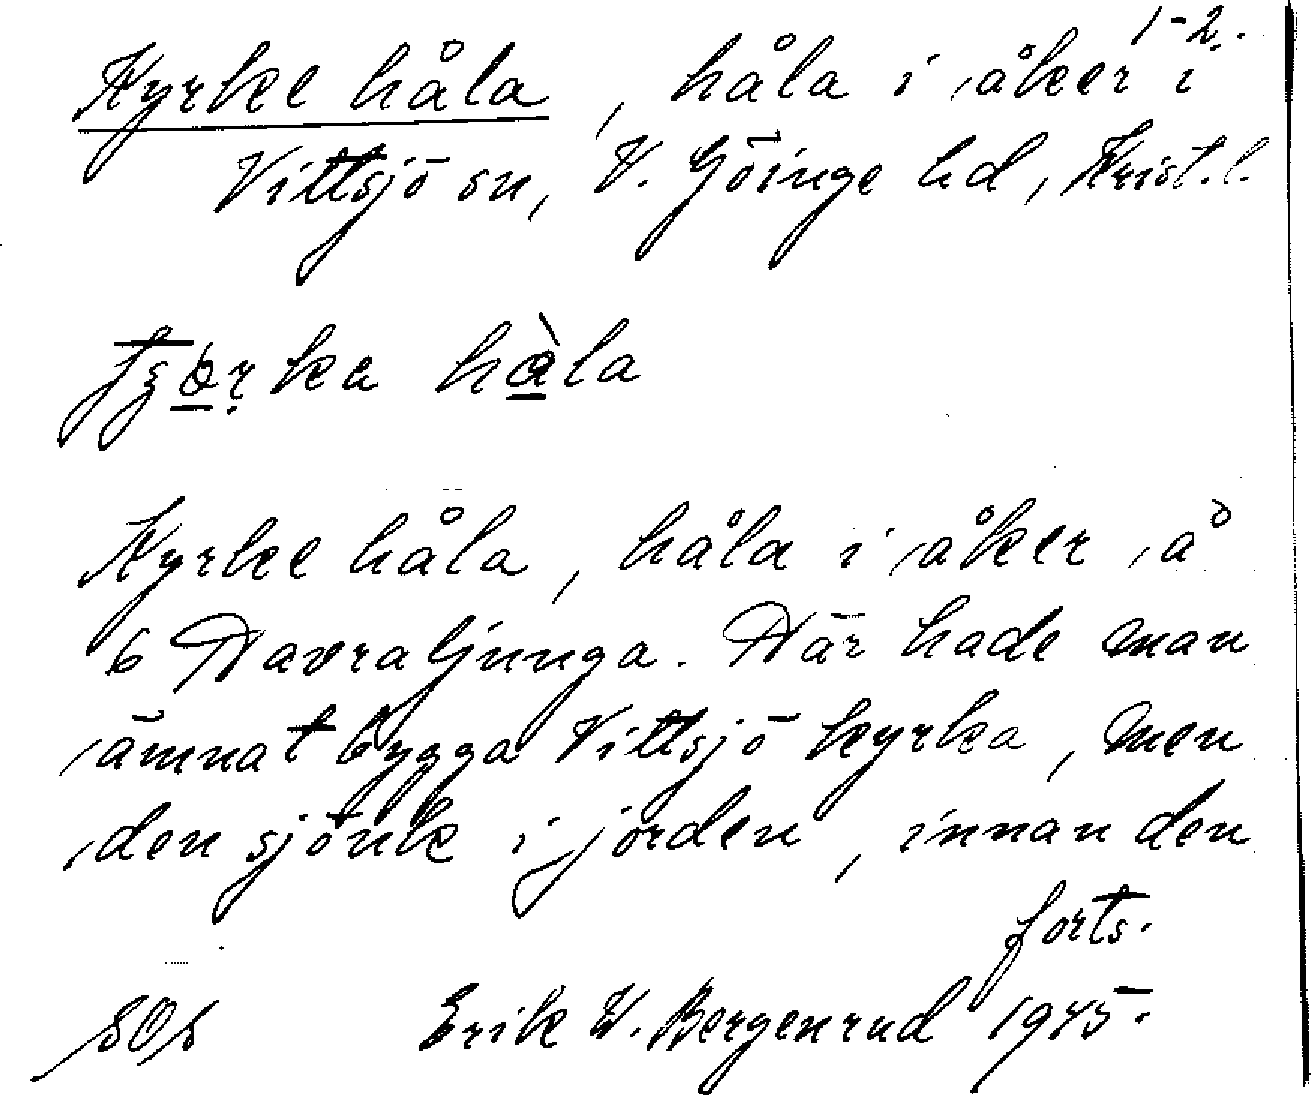 1-2.
Kyrke håla, håla i åker i
Vittsjö sn, V. Göinge hd, Krist.l.
håla
Kyrke håla, håla i åker å
6 Havraljunga. Här hade man
ämnat bygga Vittsjö kyrka, men
den sjönk i jorden, innan den
forts.
Erik W. Bergenrud 1945.